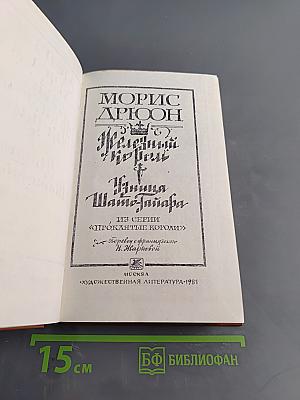 МОРИС
ДРЮОН
Железный
король
Узница
Шато-Гайара
ИЗ СЕРИИ
«ПРОКЛЯТЫЕ КОРОЛИ»
Перевод с французского
Н. Жарковой
МОСКВА
«ХУДОЖЕСТВЕННАЯ ЛИТЕРАТУРА»·1981
15 см
БФ БИБЛИОФАН